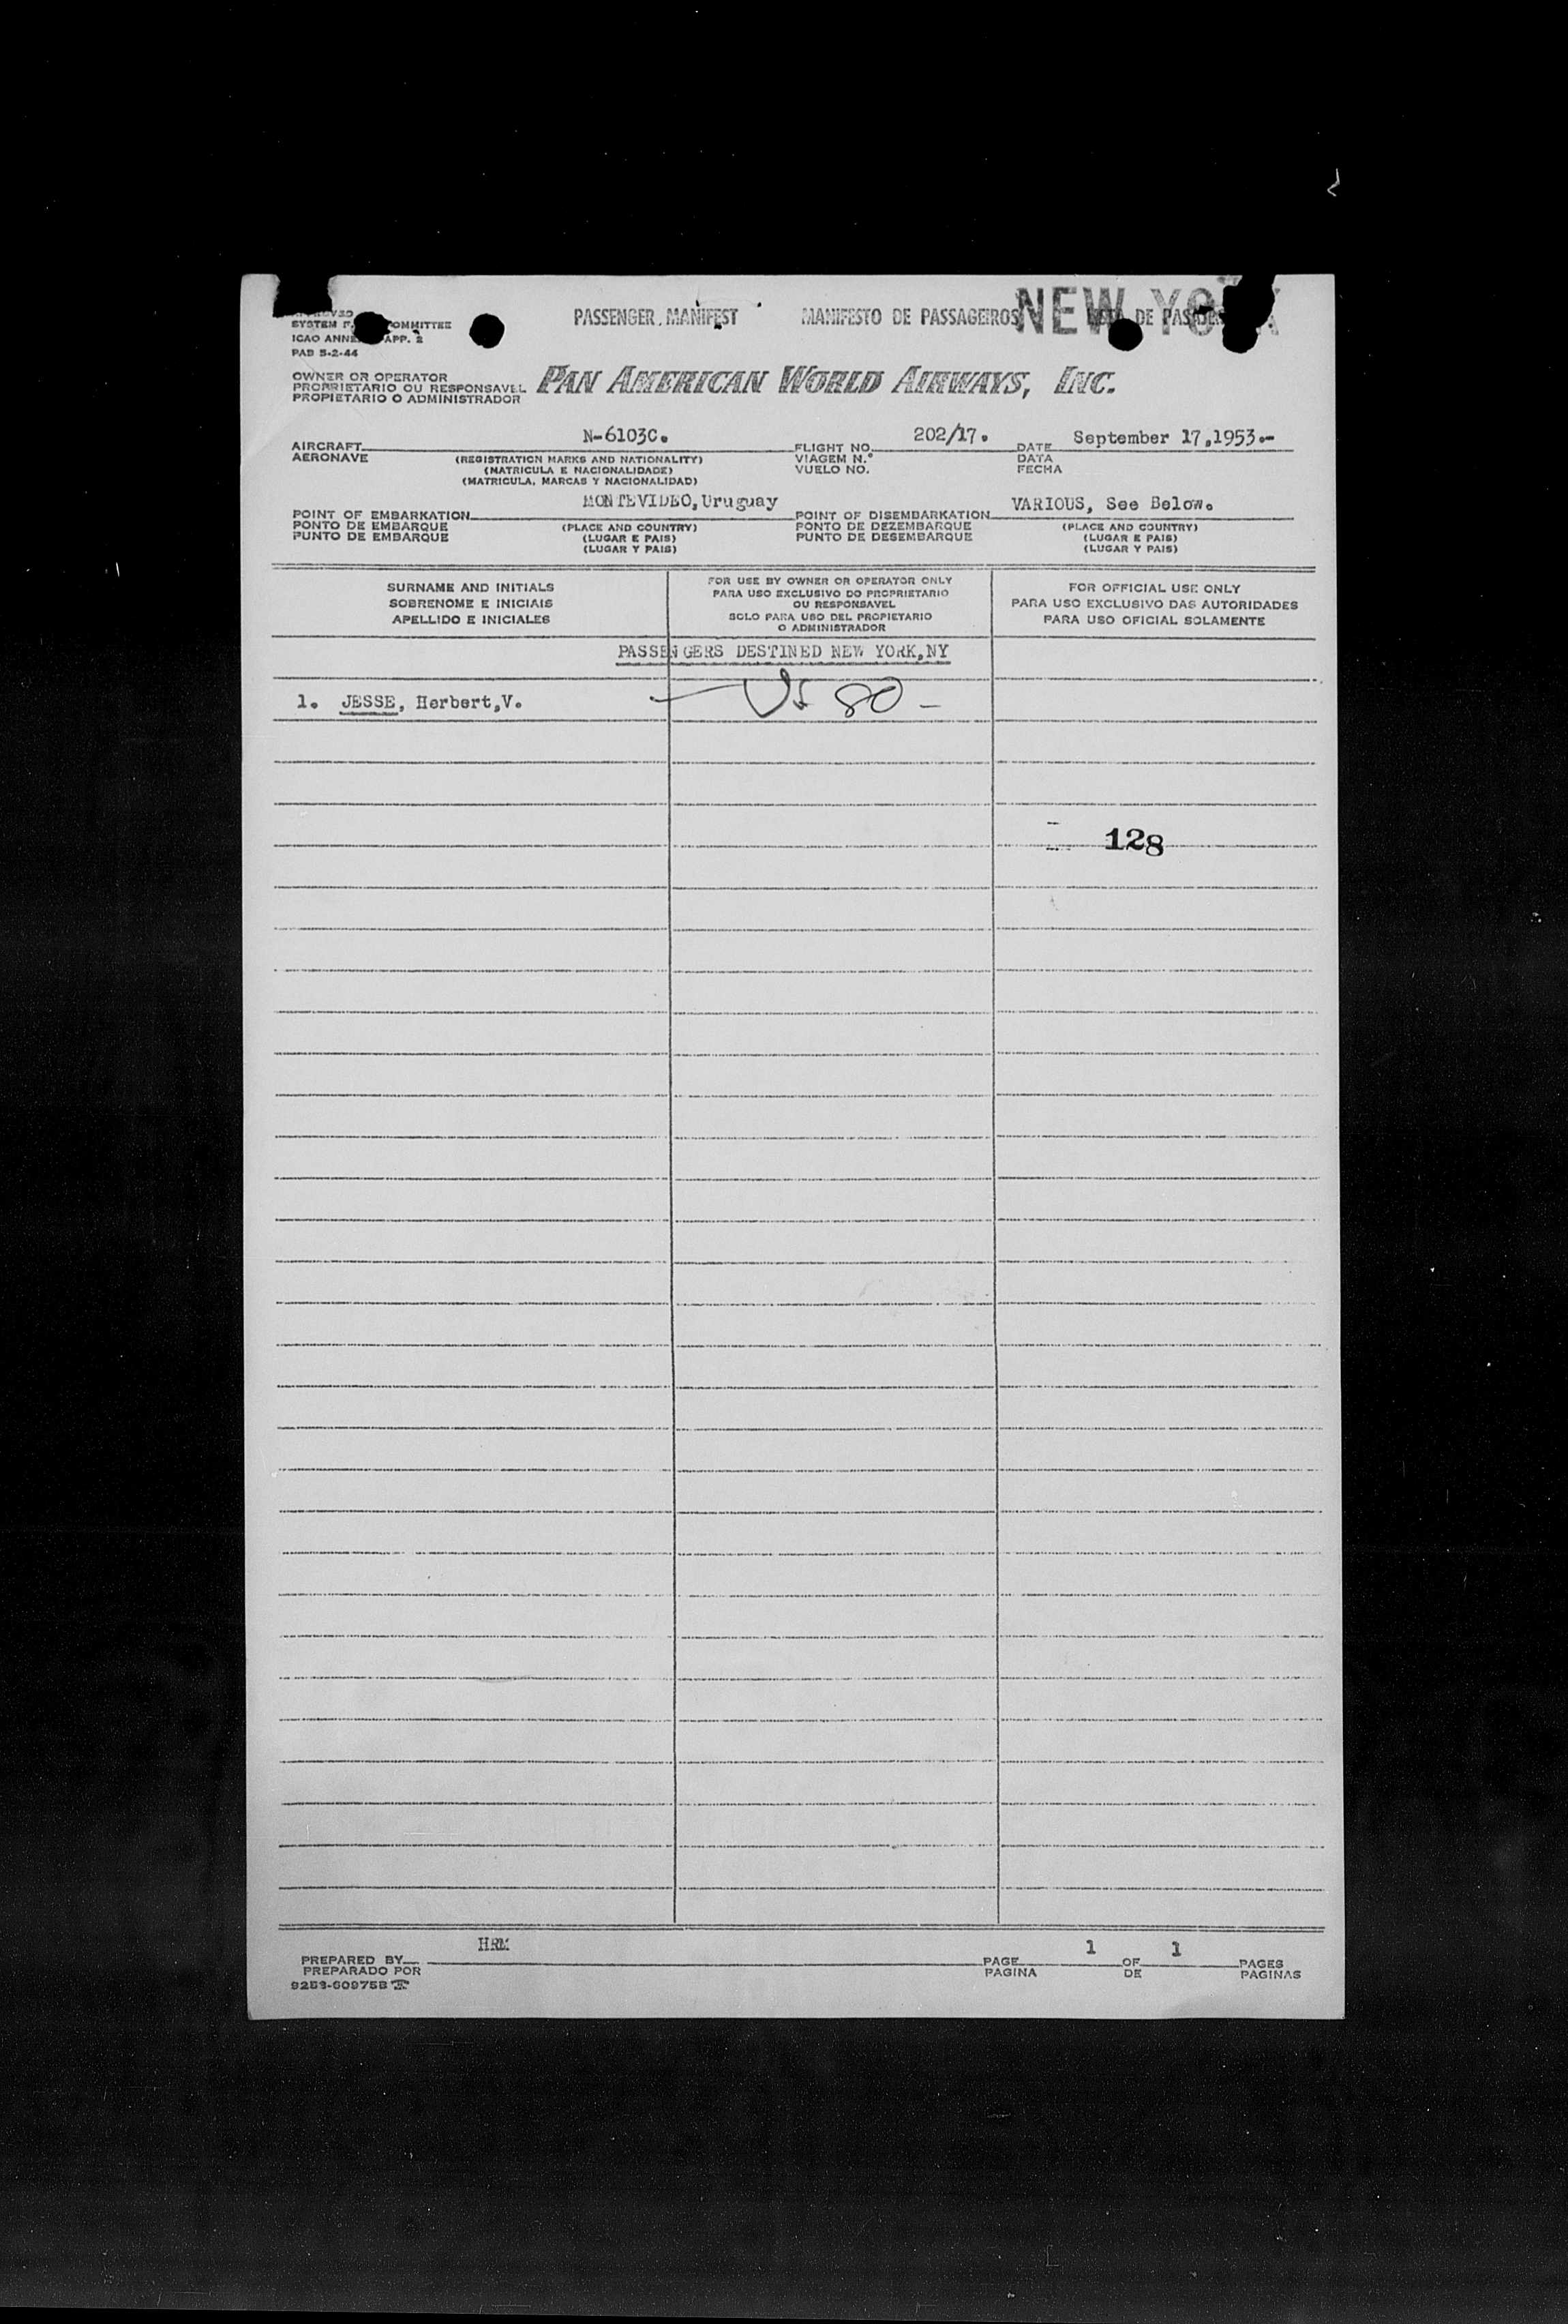 NEW YORK
PASSENGER MANIFEST MANIFESTO DE PASSAGEIROS DE
SYSTEM COMMITTEE
ICAO APP. 2
PAB 5-2-44
OWNER OR OPERATOR
PROPRIETARIO OU RESPONSAVEL
PROPIETARIO O ADMINISTRADOR
PAN AMERICAN WORLD AIRWAYS, INC.
AIRCRAFT N-6103C. FLIGHT NO. 202/17. DATE September 17,1953.-
AERONAVE (REGISTRATION MARKS AND NATIONALITY) VIAGEM N.º DATA
(MATRICULA E NACIONALIDADE) VUELO NO. FECHA
(MATRICULA, MARCAS Y NACIONALIDAD)
POINT OF EMBARKATION MONTEVIDEO,Uruguay POINT OF DISEMBARKATION VARIOUS, See Below.
PONTO DE EMBARQUE (PLACE AND COUNTRY) PONTO DE DEZEMBARQUE (PLACE AND COUNTRY)
PUNTO DE EMBARQUE (LUGAR E PAIS) PUNTO DE DESEMBARQUE (LUGAR E PAIS)
(LUGAR Y PAIS) (LUGAR Y PAIS)
SURNAME AND INITIALS
SOBRENOME E INICIAIS
APELLIDO E INICIALES
FOR USE BY OWNER OR OPERATOR ONLY
PARA USO EXCLUSIVO DO PROPRIETARIO
OU RESPONSAVEL
SOLO PARA USO DEL PROPIETARIO
O ADMINISTRADOR
FOR OFFICIAL USE ONLY
PARA USO EXCLUSIVO DAS AUTORIDADES
PARA USO OFICIAL SOLAMENTE
PASSENGERS DESTINED NEW YORK,NY
1. JESSE, Herbert,V. 80 -
128
HRM
PREPARED BY PAGE 1 OF 1 PAGES
PREPARADO POR PAGINA DE PAGINAS